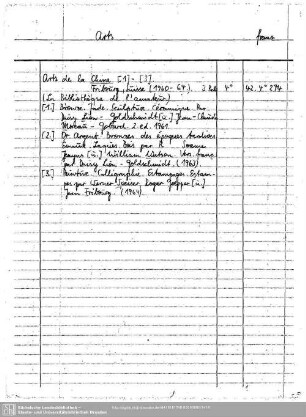 Arts franz.
Arts de la Chine [1]-[3].
Fribourg, Suisse (1960-64). 3 Bde 4° 42. 4° 274
(La Bibliothèque de l'amateur)
[1.] Bronze. Jade. Sculpture. Céramique. Par
Daisy Lion-Goldschmidt [u.] Jean-Claude
Moreau-Gobard. 2. ed. 1961.
[2.] Or. Argent. Bronzes des époques tardives.
Émaux. Laques. Bois par R. Soame
Jenyns [u.] William Watson.
par Daisy Lion-Goldschmidt. (1963).
[3.] Peinture. Calligraphie. Estampages. Estampes
par Werner Speiser, Roger Goepper [u.]
Jean Fribourg. (1964).